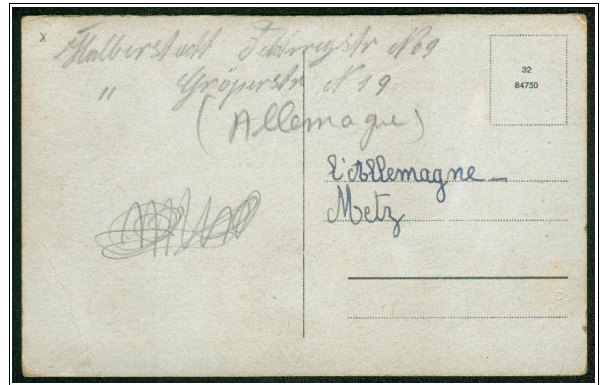 x Halberstadt N 09
" Gröperstr N 19
(Allemagne)
32
84750
l'Allemagne
Metz